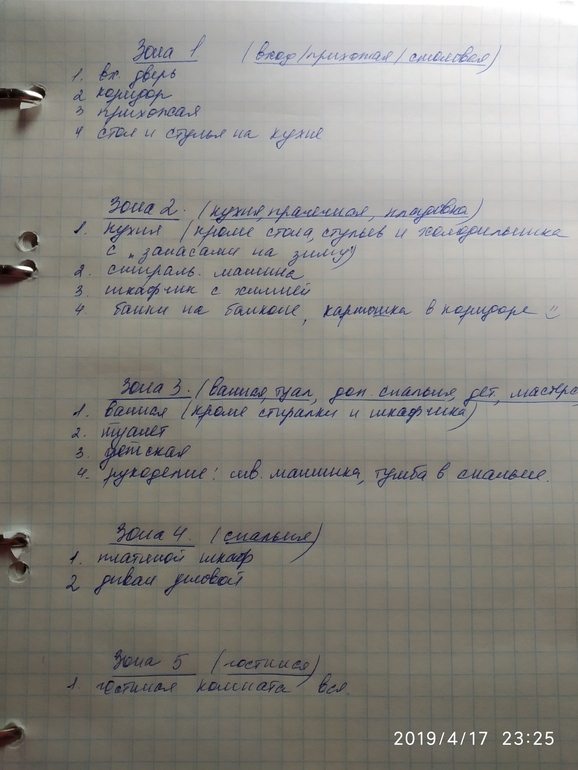 Зона 1 (вход/прихожая/столовая)
1. вх. дверь
2 коридор
3 прихожая
4 стол и стулья на кухне
Зона 2. (кухня, прачечная, кладовка)
1. кухня (кроме стола, стульев и холодильника
с „запасами на зиму")
2. стираль. машина
3. шкафчик с химией
4. банки на балконе, картошка в коридоре
Зона 3. (ванная, туал, доп. спальня, дет, мастерс
1. ванная (кроме стиралки и шкафчика)
2. туалет
3. детская
4. рукоделие: шв. машинка, тумба в спальне.
Зона 4. (спальня)
1. платяной шкаф
2 диван
Зона 5 (гостиная)
1. гостиная комната вся.
2019/4/17 23:25